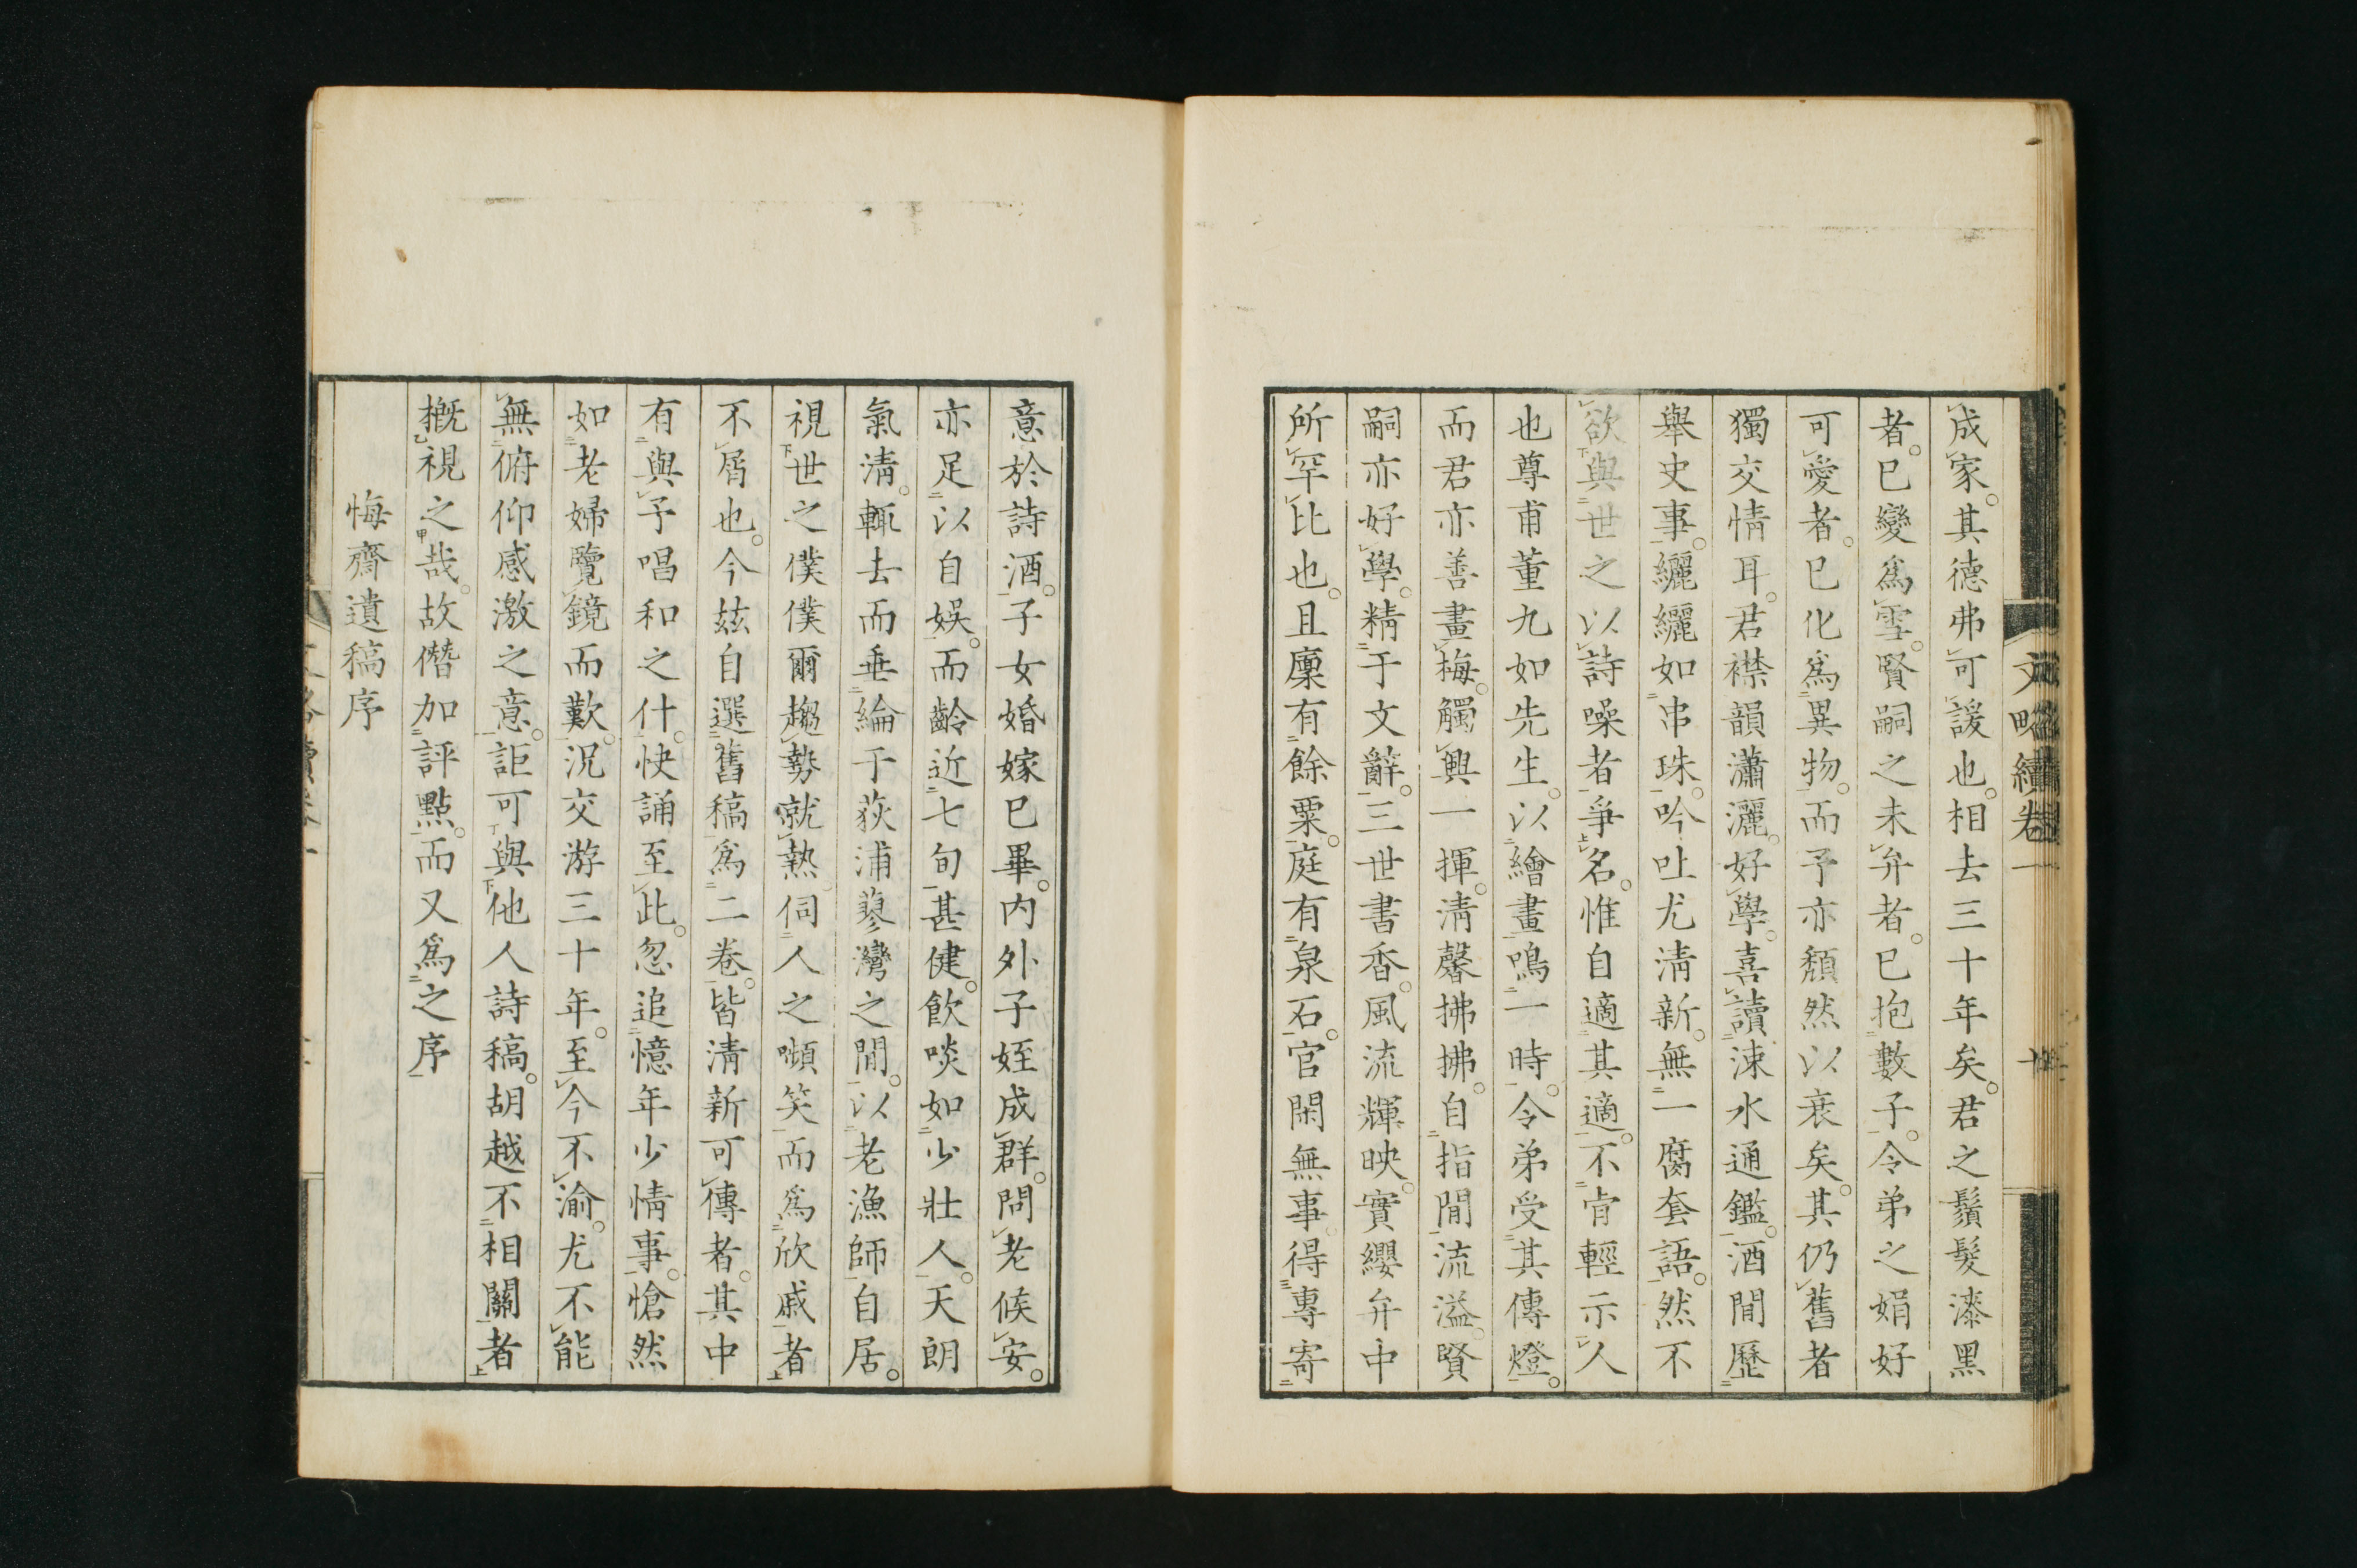 成家。其德弗可諼也。相去三十年矣。君之鬚髮漆黑
者。已變爲雪。賢嗣之未弁者。已抱數子。令弟之娟好
可愛者。已化爲異物。而予亦頹然以衰矣。其仍舊者
獨交情耳。君襟韻瀟灑。好學。喜讀涑水通鑑。酒間歷
舉史事。纚纚如串珠。吟吐尤淸新。無一腐套語。然不
欲與世之以詩噪者爭名。惟自適其適。不肯輕示人
也尊甫董九如先生。以繪畫鳴一時。令弟受其傳燈。
而君亦善畫梅。觸興一揮。淸馨拂拂。自指間流溢。賢
嗣亦好學。精于文辭。三世書香。風流輝映。實纓弁中
所罕比也。且廩有餘粟。庭有泉石。官閑無事。得專寄
意於詩酒。子女婚嫁已畢。内外子姪成群。問老候安。
亦足以自娛。而齡近七旬甚健。飮啖如少壯人。天朗
氣淸。輒去而垂綸于荻浦蓼灣之間。以老漁師自居。
視世之僕僕爾趨勢就熱伺人之嚬笑而爲欣戚者
不屑也。今玆自選舊稿爲二卷。皆淸新可傳者。其中
有與予唱和之什。快誦至此。忽追憶年少情事。愴然
如老婦覽鏡而歎。況交游三十年。至今不渝。尤不能
無俯仰感激之意。詎可與他人詩稿。胡越不相關者
概視之哉。故僭加評點。而又爲之序
悔齋遺稿序
文略續卷一